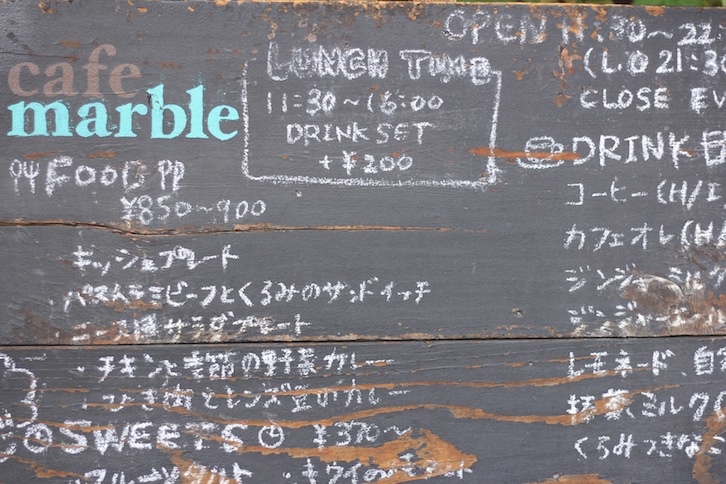 cafe
marble
LUNCH TIME
11:30～16:00
DRINK SET
+¥200
OPEN 11:30～22
(L.O 21:30
CLOSE
FOOD
¥850～900
キッシュプレート
・パストラミビーフとくるみのサンドイッチ
サラダプレート
・チキンと季節の野菜カレー
・ひき肉とレンズ豆のカレー
SWEETS ¥370～
フルーツタルト
・キウイの
DRINK
コーヒー(H/I
カフェオレ(H/
ジンジャー
ジンジャー
レモネード、自
抹茶ミルク
くるみっきなこ